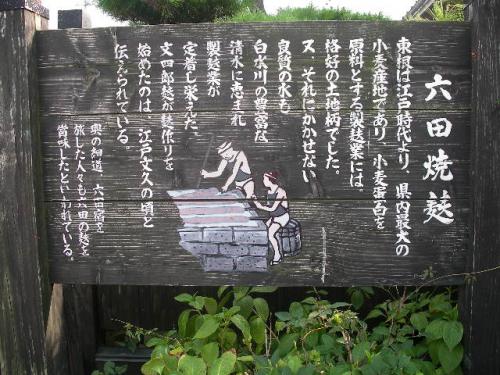 六田焼麸
東根は江戸時代より、県内最大の
小麦産地であり、小麦蛋白を
原料とする製麸業には、
格好の土地柄でした。
又、それにかかせない
良質の水も
白水川の豊富な
清水に恵まれ
製麸業が
定着し栄えた。
文四郎麸が麸作りを
始めたのは、江戸文久の頃と
伝えられている。
奥の細道、六田宿を
旅した人々も六田の麸を
賞味したといわれている。